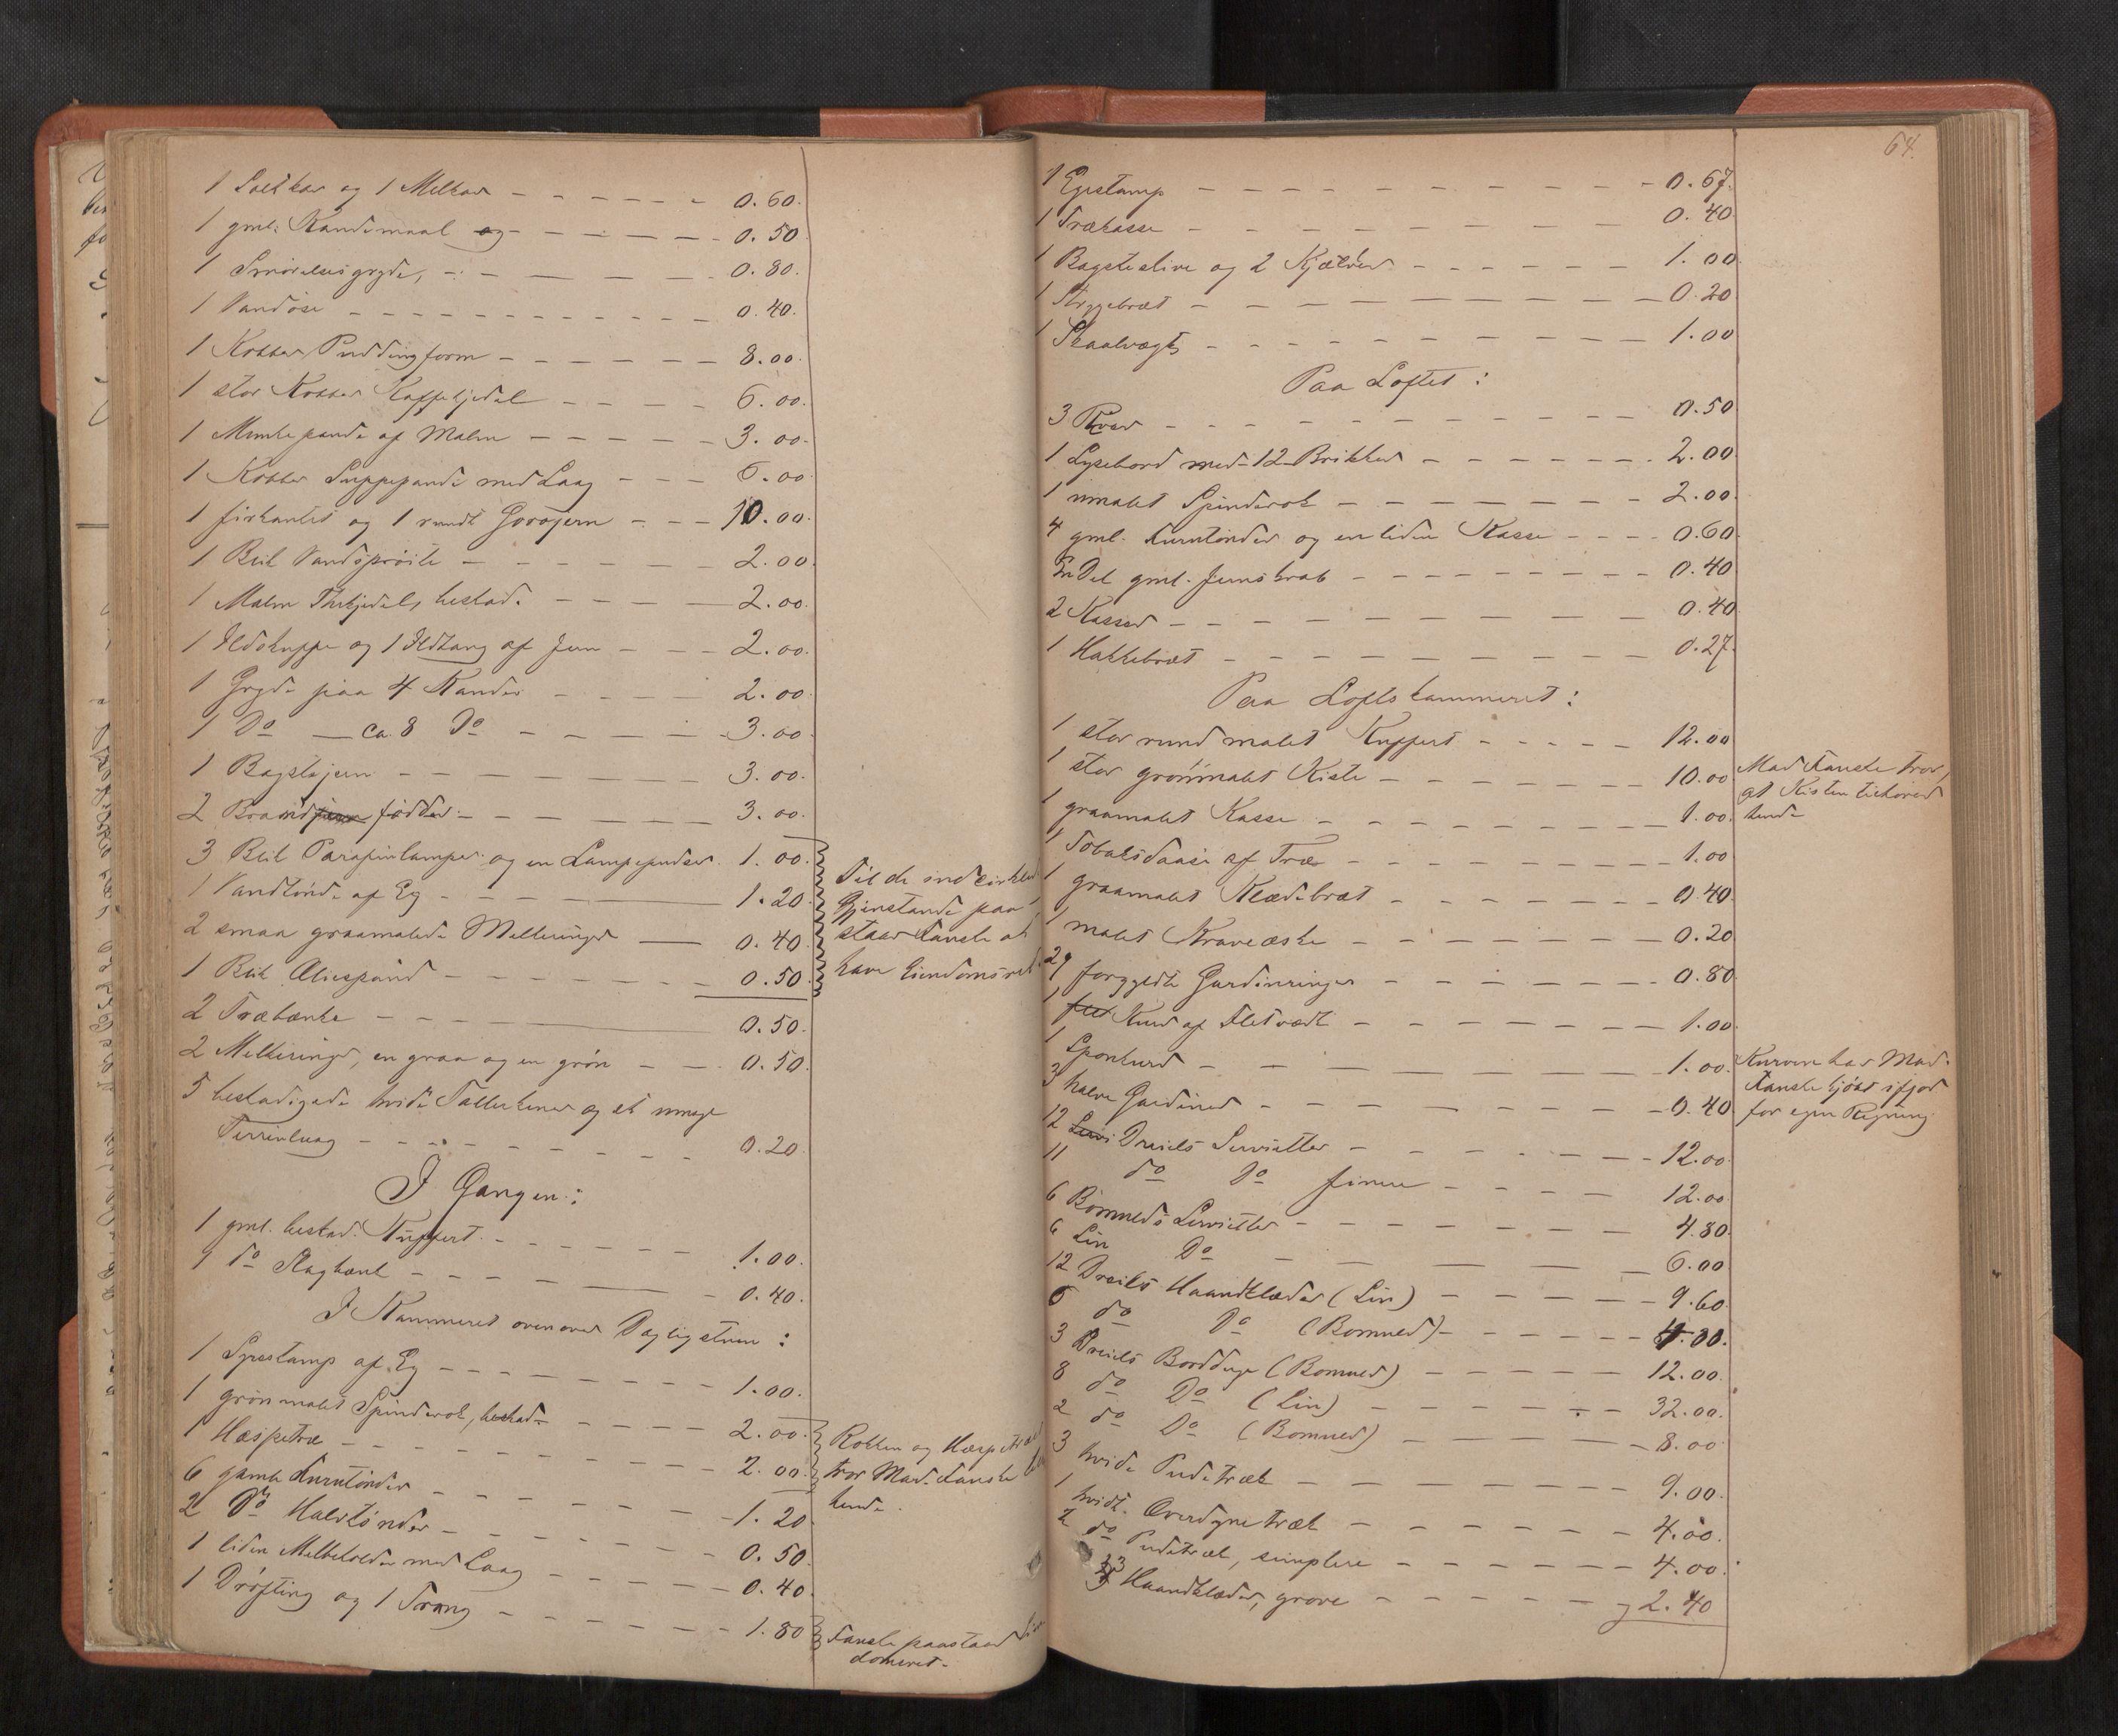 1 Saltkar og 1 Melkar - - - - - 0.60.
1 gml. Kandemaal og - - - - - - 0.50
1 Smørelsesgryde, - - - - - 0.80.
1 Vandøse - - - - - - - - - - - - 0.40.
1 Kobber Puddingform - - - - - - 8.00.
1 stor Kobber Kaffekjedel - - - - 6.00.
1 Munkepande af Malm - - - - - 3.00.
1 Kobber Suppepande med Laag - - - 6.00
1 firkantet og 1 rundt Gorojern - - - 10.00.
1 Blik Vandsprøite - - - - - - - 2.00.
1 Malm Thekjedel, beskad. - - - - 2.00.
1 Ildskuppe og 1 Ildtang af Jern - - - 2.00.
1 Gryde paa 4 Kander - - - - 2.00.
1 Do — ca 8 Do - - - - - 3.00.
1 Bagstejern - - - - - - - - 3.00.
2 Brandjern fødder - - - - - - - 3.00.
3 Blik Parafinlamper og en Lampepudser. 1.00.
1 Vandtønde af Eg - - - - 1.20.
2 smaa graamalede Melkeringer — 0.40.
1 Blik Oliespand - - - - - - - 0.50.
Til de indcirklede
Gjenstande paa-
staar Fanske at
have Eiendomsret.
2 Træbænke - - - 0.50.
2 Melkeringe, en graa og en grøn - - 0.50.
5 beskadigede hvide Tallerkener og et
Terrinlaag - - - - - - - - - 0.20
I Gangen:
1 gml. beskad. Kuffert - - - - - - 1.00.
1 do Slagbænk - - - - - 0.40.
I Kammeret ovenover Dagligstuen:
1 af Eg - - - - - - - - 1.00.
1 grønmalet Spinderok, beskad. - - - - - 2.00.
1 Haspetræ - - - - - - - - - 2.00.
Rokken og Haspetræet
tror Mad. Fanske
hende.
6 gamle Korntønder - - - - - - - 1.20
2 Do Halvtønder - - - - - - - 0.50.
1 liden Melbeholder med Laag - - - - - 0.40.
1 Drøfting og 1 Trang - - - - - - 1.80
Fanske paastaar Eien-
domsret.
64.
1 Egestamp - - - - - - - - - - - 0.67.
1 Trækasse - - - - - - - - - - 0.40
1 Bagsteslire og 2 Kjævler - - - - - - 1.00
1 Strygebræt - - - - - - - - - - 0.20
1 Skaalvægt - - - - - - - - - - 1.00
Paa Loftet:
3 - - - - - - - - - - 0.50
1 Lysebord med 12 Brikker - - - - - - 2.00
1 umalet Spinderok - - - - - - - 2.00.
4 gml. Korntønder og en liden Kasse - - - - 0.60.
En Del gml. Jernskrab - - - - - - - - 0.40
2 Kasser - - - - - - - - - - 0.40
1 Hakkebræt - - - - - - - - - 0.27.
Paa Loftskammeret:
1 stor rund malet Kuffert - - - - - 12.00
1 stor grønmalet Kiste - - - - - - 10.00
Mad Fanske tror,
at Kisten tilhører
hende
1 graamalet Kasse - - - - - - - - 1.00.
1 Tobaksdaase af Træ - - - - - - - 1.00
1 graamalet Klædebræt - - - - - - - 0.40
1 malet Kraveæske - - - - - - - 0.20
29 forgyldte Gardinringer - - - - - - 0.80
1 flet Kurv af Fletværk - - - - - - - 1.00
1 Sponkurv - - - - - - - - - 1.00.
Kurven har Mad.
Fanske kjøbt ifjor
for egen Regning
3 halve Gardiner - - - - - - - - 0.40
12 Servi Dreiels Servietter - - - - - - 12.00
11 do Do finere - - - - 12.00
6 Bomulds Servietter - - - - - - - 4.80
6 Lin Do - - - - - 6.00
12 Dreiels Haandklæder (Lin) - - - - - - 9.60
6 do Do (Bomuld) - - - - - 4.80.
3 Dreiels Bordduge (Bomuld) - - - - - 12.00.
8 do Do (Lin) - - - - - 32.00.
2 do Do (Bomuld) - - - - 8.00
3 hvide Pudetræk - - - - - - - 9.00.
1 hvidt Overdynetræk - - - - - - 4.00.
2 do Pudetræk, simplere - - - - - - 4.00.
13 Haandklæder, grove - - - - - - 2.40